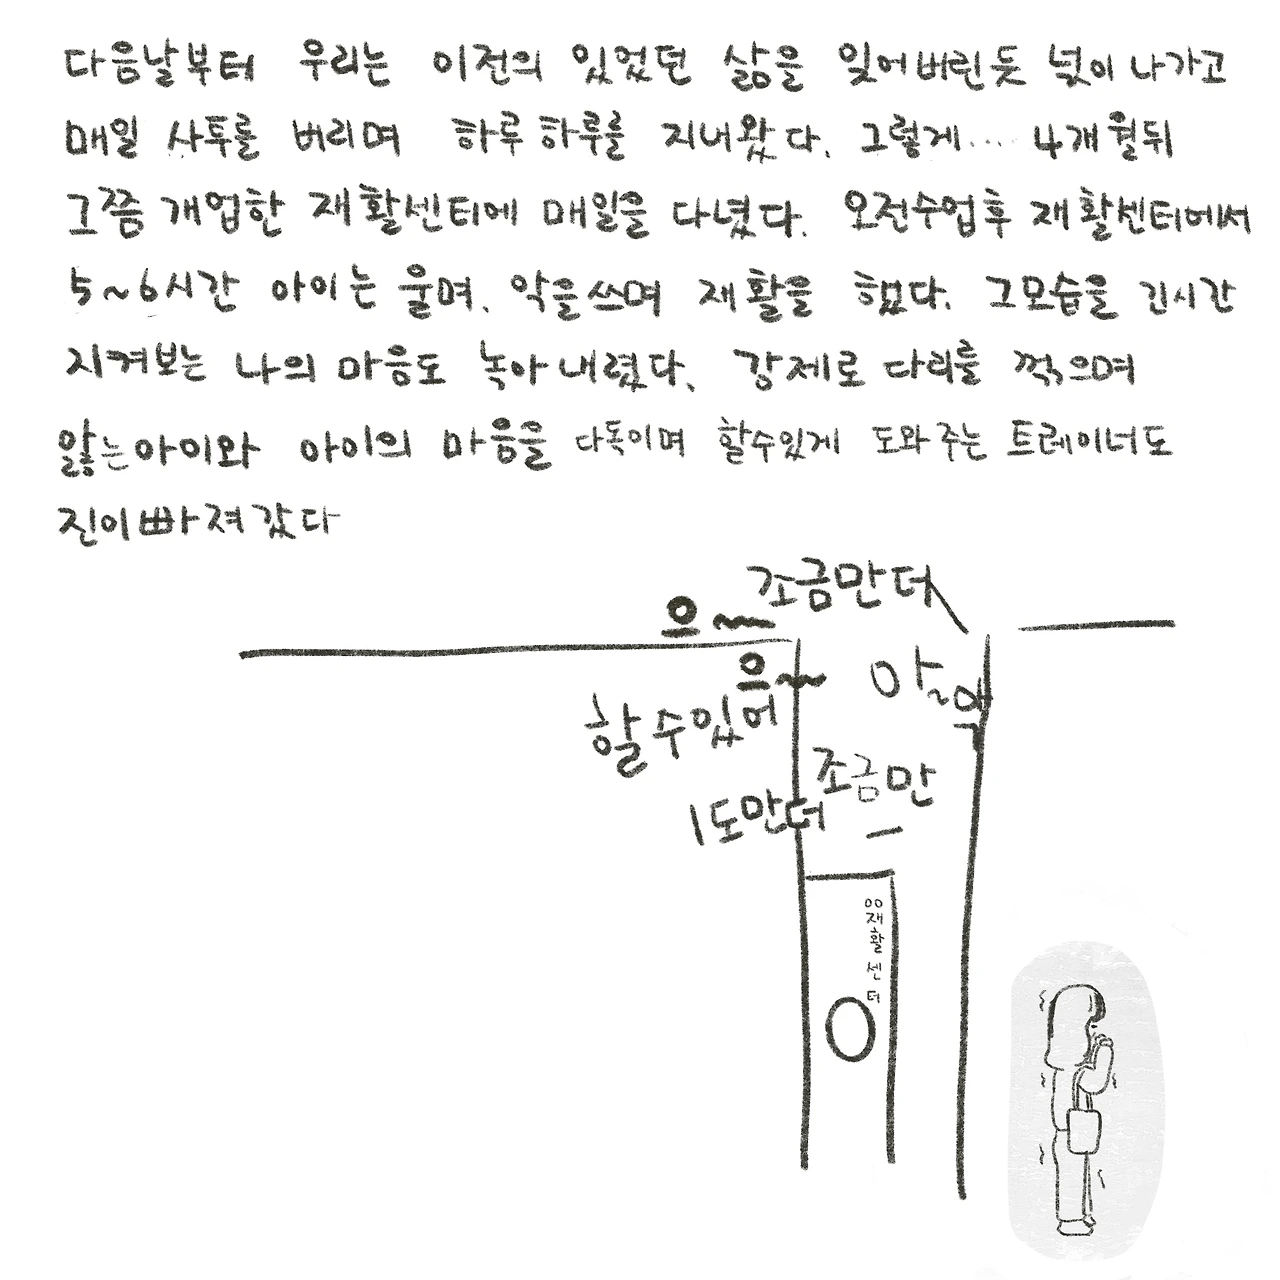 다음날부터 우리는 이전의 있었던 삶을 잊어버린듯 넋이 나가고
매일 사투를 버리며 하루 하루를 지내왔다. 그렇게.... 4개월뒤
그쯤 개업한 재활센터에 매일을 다녔다. 오전수업후 재활센터에서
5~6시간 아이는 울며. 악을쓰며 재활을 했다. 그모습을 긴시간
지켜보는 나의 마음도 녹아내렸다. 강제로 다리를 꺽으며
앓는아이와 아이의 마음을 다독이며 할수있게 도와주는 트레이너도
진이빠져갔다
조금만더
으~
으~
아~악
할수있어
조금만
1도만더
OO재활센터